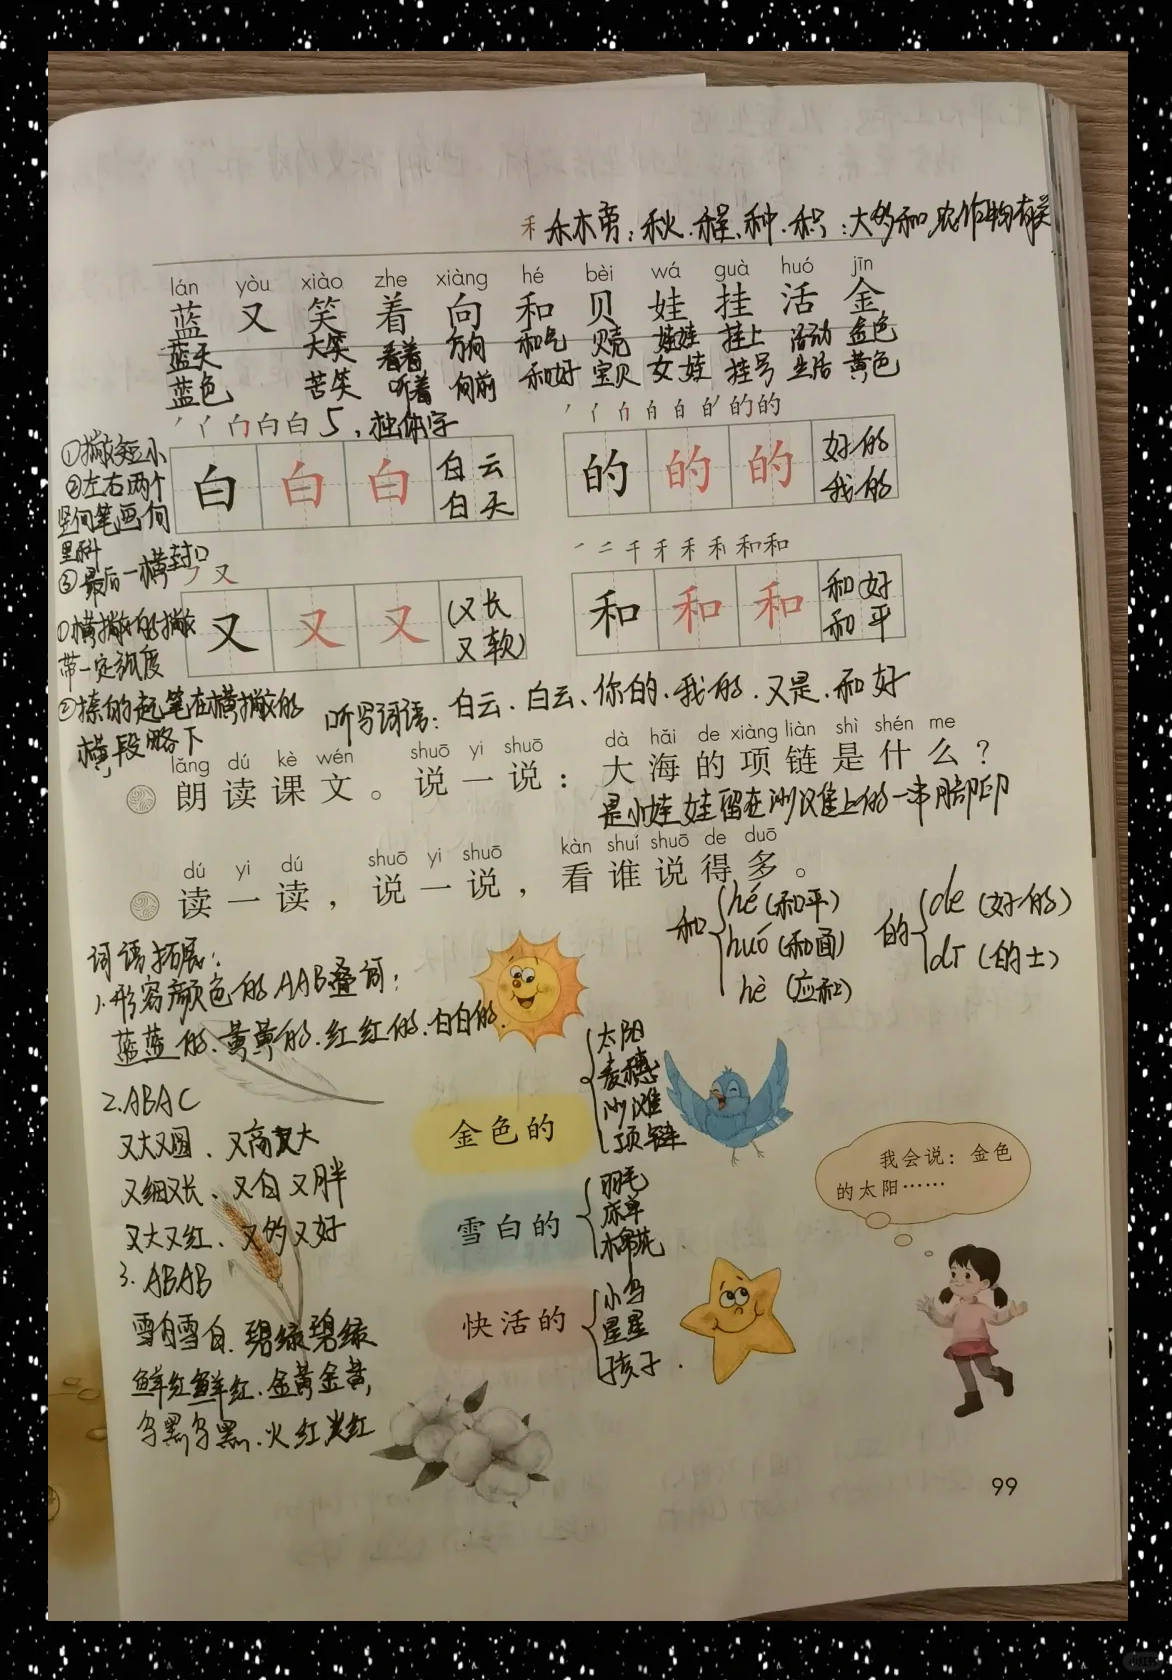 禾 禾木旁：秋、程、种、积：大多和农作物有关
lán yòu xiào zhe xiàng hé bèi wá guà huó jīn
蓝 又 笑 着 向 和 贝 娃 挂 活 金
蓝天 大笑 看着 方向 和气 贝壳 娃娃 挂上 活动 金色
蓝色 苦笑 听着 向前 和好 宝贝 女娃 挂号 生活 黄色
5，独体字
①撇短小
②左右两个
竖向笔画向
里斜
③最后一横封口
白 白 白 白云
白天
的 的 的 好的
我的
①横撇的撇
带一定弧度
②捺的起笔在横撇的
横段略下
又 又 又 (又长
又软)
和 和 和 和好
和平
听写词语：白云、白云、你的、我的、又是、和好
lǎng dú kè wén shuō yi shuō dà hǎi de xiàng liàn shì shén me
朗读课文。说一说：大海的项链是什么？
是小娃娃留在沙滩上的一串脚印
dú yi dú shuō yi shuō kàn shuí shuō de duō
读一读，说一说，看谁说得多。
和 hé (和平)
huó (和面)
hè (应和)
的 de (好的)
dī (的士)
词语拓展：
1.形容颜色的AAB叠词：
蓝蓝的、黄黄的、红红的、白白的
2.ABAC
又大又圆、又高又大
又细又长、又白又胖
又大又红、又多又好
3.ABAB
雪白雪白、碧绿碧绿
鲜红鲜红、金黄金黄，
乌黑乌黑、火红火红
金色的
太阳
麦穗
沙滩
项链
雪白的
羽毛
床单
棉花
快活的
小鸟
星星
孩子.
我会说：金色
的太阳……
99